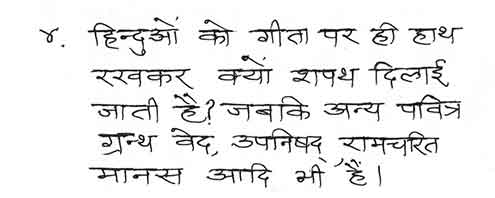 ४. हिन्दुओं को गीता पर ही हाथ
रखकर क्यों शपथ दिलाई
जाती है? जबकि अन्य पवित्र
ग्रन्थ वेद, उपनिषद्, रामचरित
मानस आदि भी हैं।